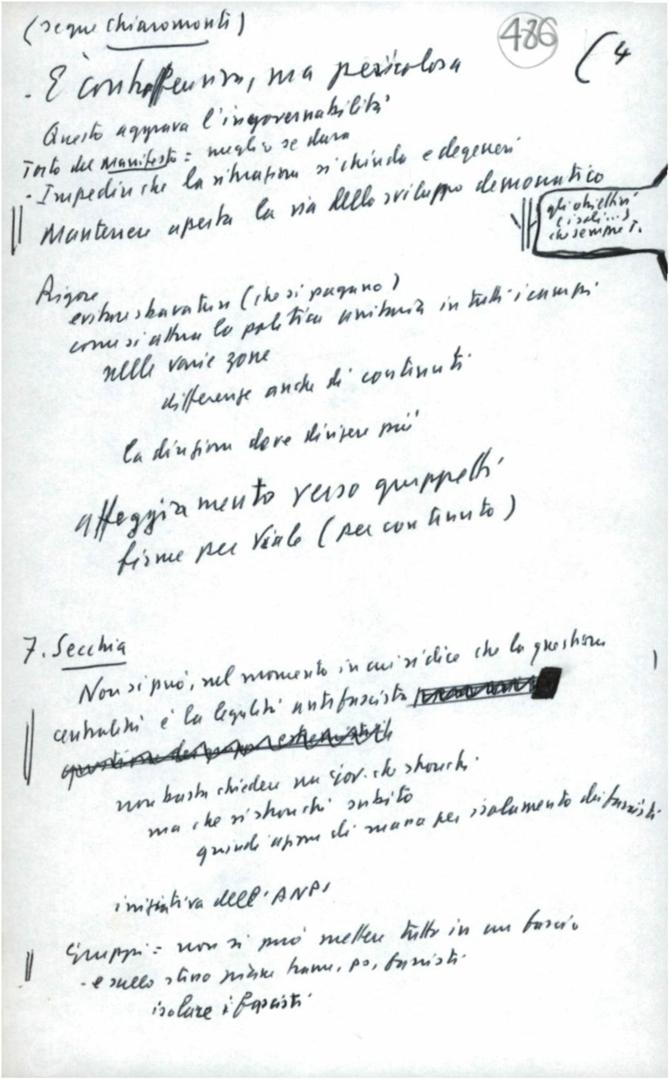 (segue Chiaromonti)
486
(4
- È controffensiva, ma pericolosa
Questo aggrava l'ingovernabilità
Torto del Manifesto = meglio se dura
- Impedire che la situazione si chiuda e degeneri
Mantenere aperta la via dello sviluppo democratico
gli obiettivi
che sempre
Rigore
evitare sbavature (che si pagano)
come si attua la politica unitaria in tutti i campi
nelle varie zone
differenze anche di contenuti
la direzione deve dirigere più
atteggiamento verso gruppetti
firme per Viale (per contenuto)
7. Secchia
Non si può, nel momento in cui si dice che la questione
centralità è la legalità antifascista
non basta chiedere un gov. che stronchi
ma che si stronchi subito
quindi azione di massa per isolamento dei fascisti
iniziativa dell'ANPI
Gruppi = non si può mettere tutto in un fascio
- e sullo stesso piano fascisti
isolare i fascisti